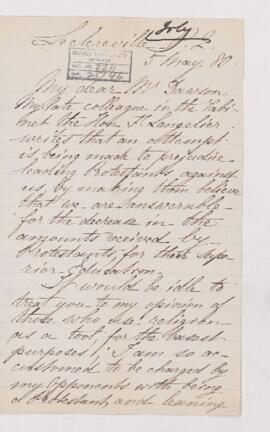 Leclercville, Q.
5 May 80.
My dear Mr Dawson,
My late colleague in the Cabi-
net the Hon. F. Langelier
writes that an attempt
is being made to prejudice
leading Protestants against
us, by making them believe
that we are answerable
for the decrease in the
amounts received by
Protestants, for their supe-
rior Education.
It would be idle to
treat you to my opinion of
those who use religion
as a tool, for the basest
purposes; I am so ac-
customed to be charged by
my opponents with being
a Protestant, and leaning